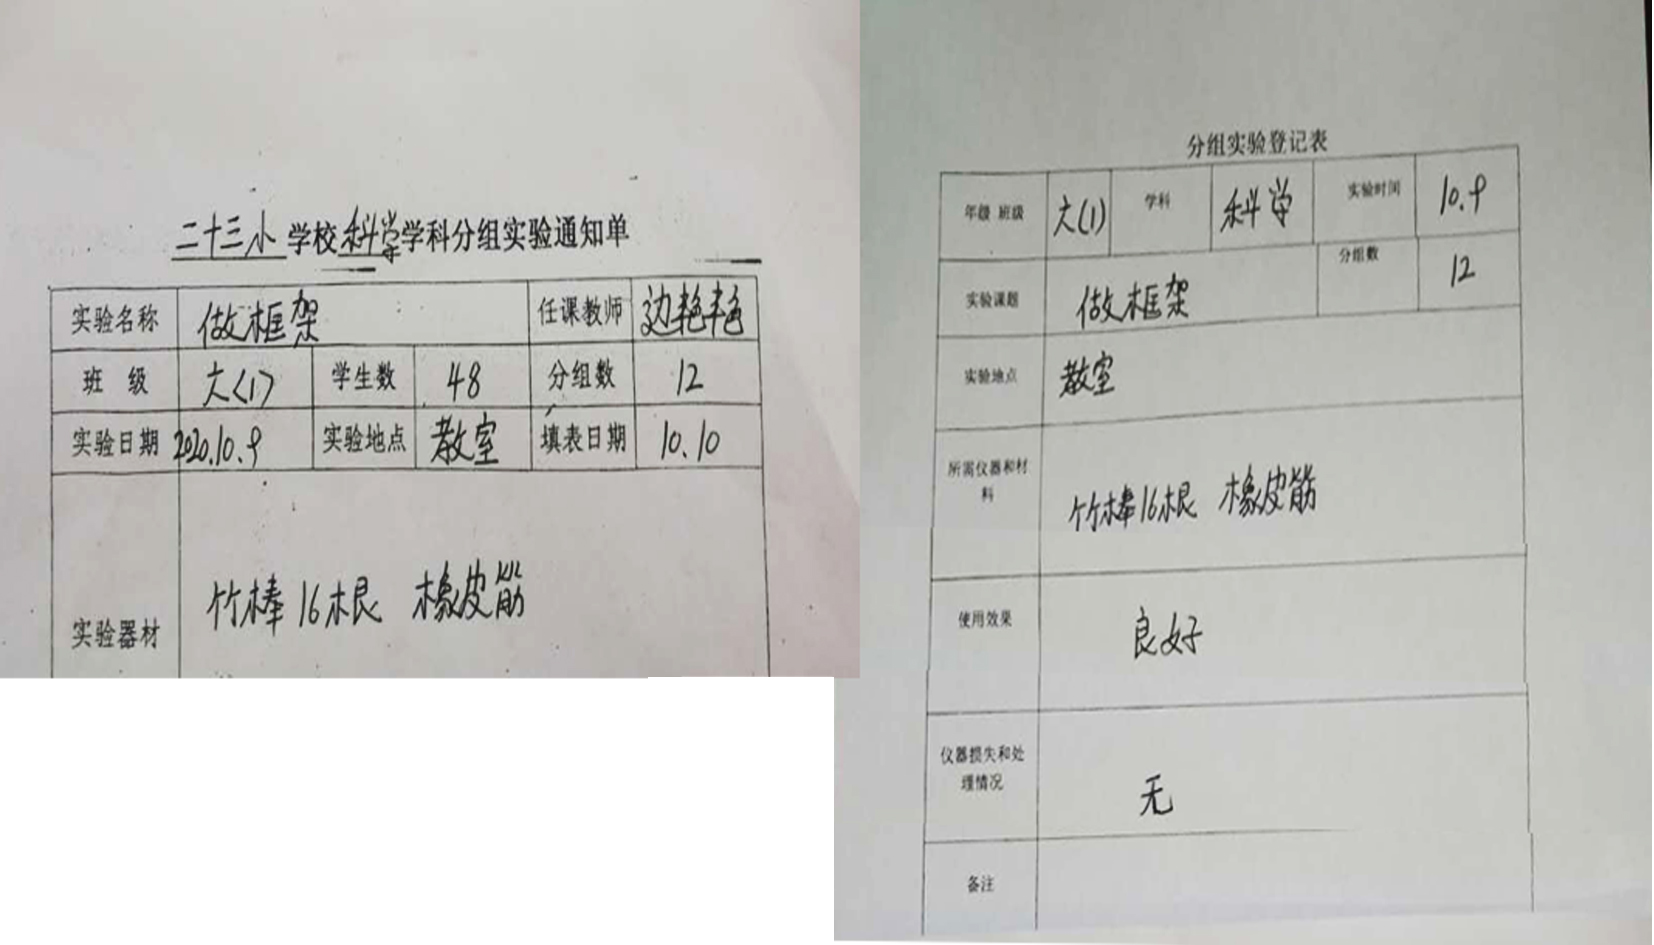 二十三小学校科学学科分组实验通知单
实验名称 做框架 任课教师 边艳艳
班 级 六(1) 学生数 48 分组数 12
实验日期 2020.10.9 实验地点 教室 填表日期 10.10
实验器材 竹棒16根 橡皮筋
分组实验登记表
年级 班级 六(1) 学科 科学 实验时间 10.9
实验课题 做框架 分组数 12
实验地点 教室
所需仪器和材
料 竹棒16根 橡皮筋
使用效果 良好
仪器损失和处
理情况 无
备注